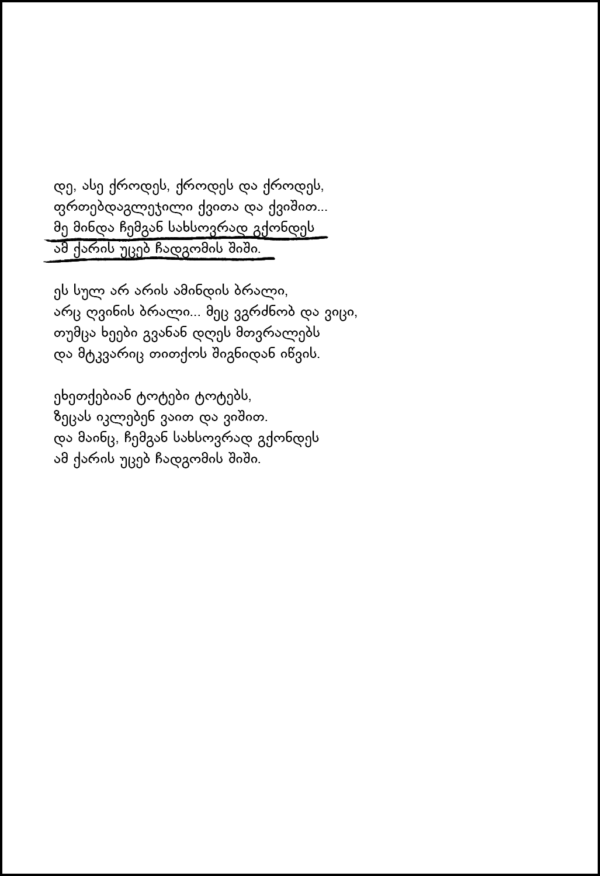 დე, ასე ქროდეს, ქროდეს და ქროდეს,
ფრთებდაგლეჯილი ქვითა და ქვიშით...
მე მინდა ჩემგან სახსოვრად გქონდეს
ამ ქარის უცებ ჩადგომის შიში.
ეს სულ არ არის ამინდის ბრალი,
არც ღვინის ბრალი... მეც ვგრძნობ და ვიცი,
თუმცა ხეები გვანან დღეს მთვრალებს
და მტკვარიც თითქოს შიგნიდან იწვის.
ეხეთქებიან ტოტები ტოტებს,
ზეცას იკლებენ ვაით და ვიშით.
და მაინც, ჩემგან სახსოვრად გქონდეს
ამ ქარის უცებ ჩადგომის შიში.